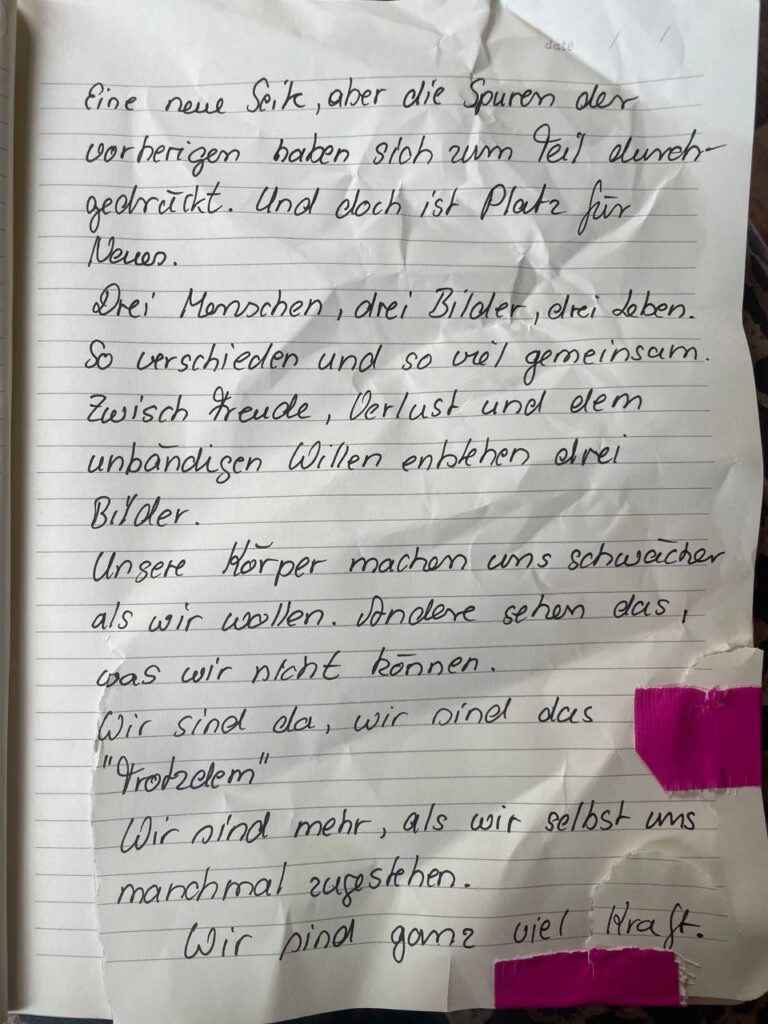 date / /
Eine neue Seite, aber die Spuren der
vorherigen haben sich zum Teil durch-
gedrückt. Und doch ist Platz für
Neues.
Drei Menschen, drei Bilder, drei Leben.
So verschieden und so viel gemeinsam.
Zwisch Freude, Verlust und dem
unbändigen Willen entstehen drei
Bilder.
Unsere Körper machen uns schwächer
als wir wollen. Andere sehen das,
was wir nicht können.
Wir sind da, wir sind das
"Trotzdem"
Wir sind mehr, als wir selbst uns
manchmal zugestehen.
Wir sind ganz viel Kraft.